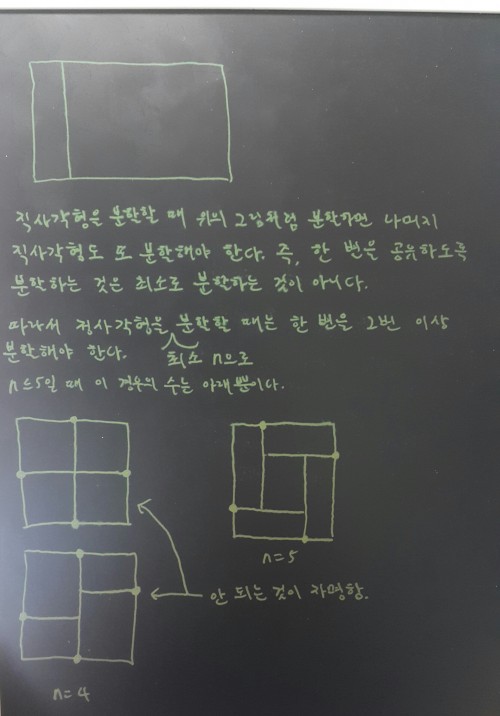 직사각형을 분할할 때 위의 그림처럼 분할하면 나머지
직사각형도 또 분할해야 한다. 즉, 한 변을 공유하도록
분할하는 것은 최소로 분할하는 것이 아니다.
따라서 직사각형을 분할할 때는 한 변을 2번 이상
분할해야 한다. 최소 n으로
n≤5일 때 이 경우의 수는 아래뿐이다.
n=5
안 되는 것이 자명함.
n=4